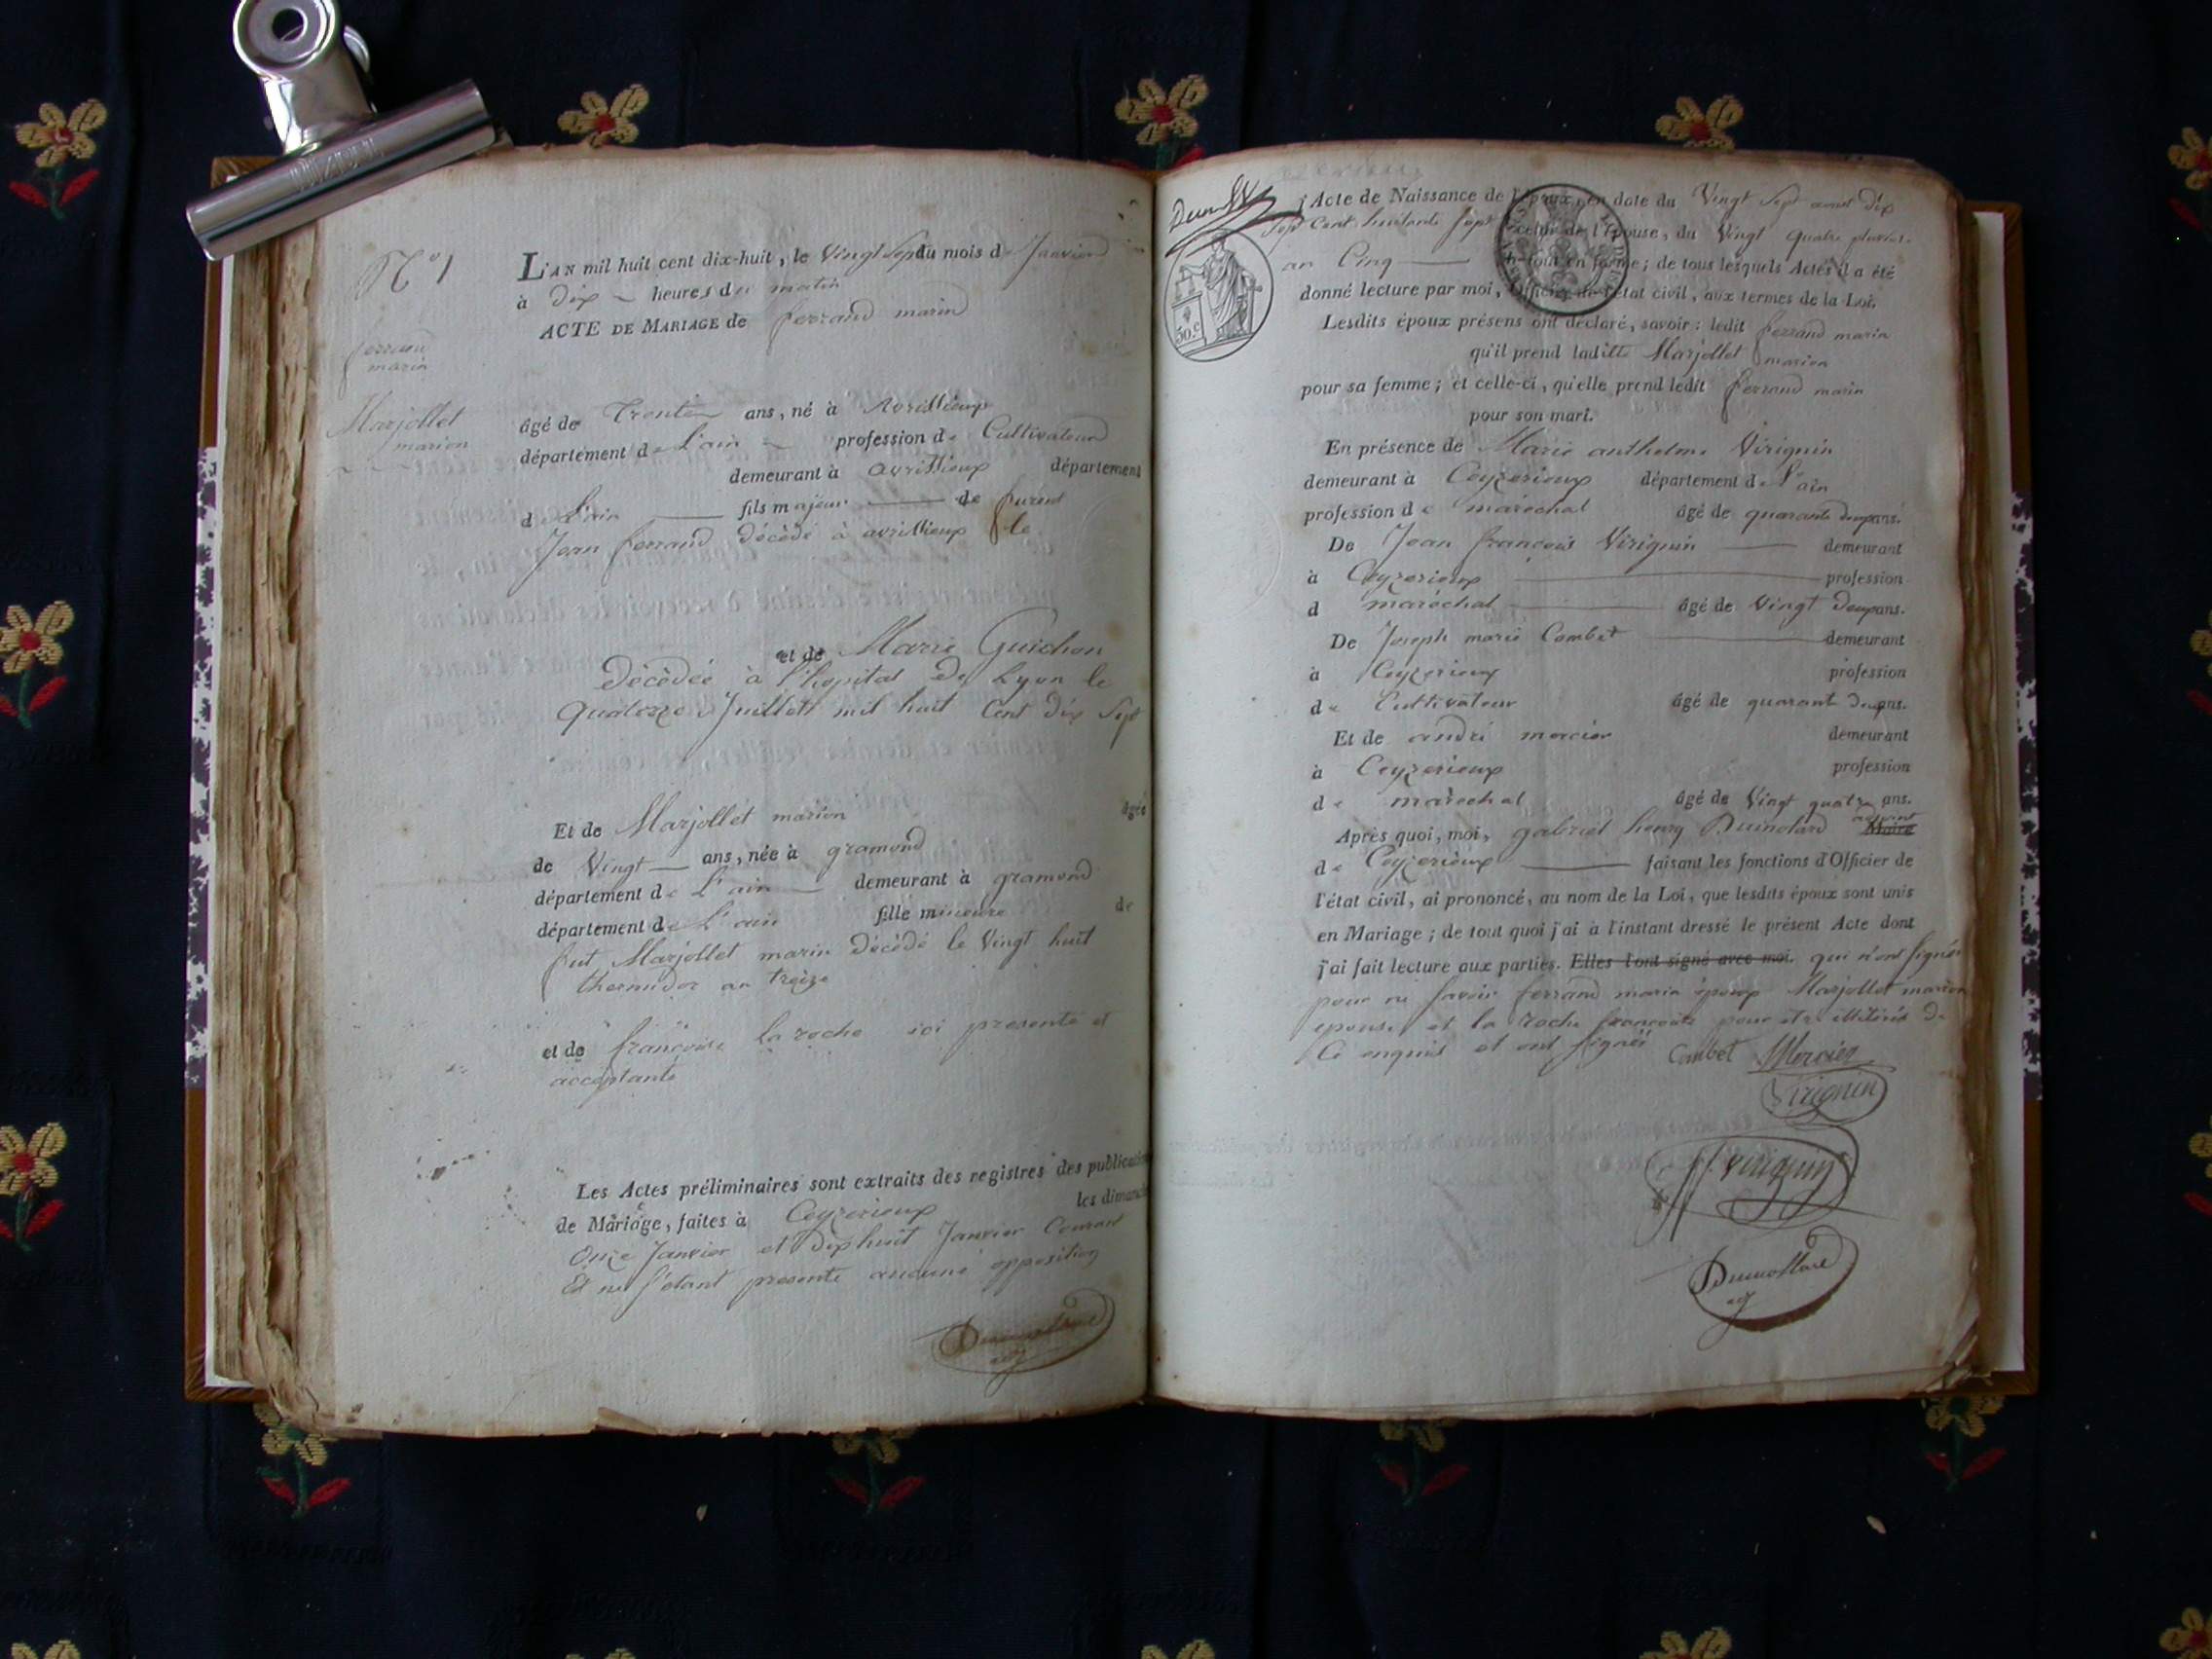 N° 1
L'AN mil huit cent dix-huit, le Vingt Sept du mois de Janvier
à Dix heures du matin
ACTE DE MARIAGE de ferrand marin
ferrand
marin
Marjollet
marion
âgé de Trente ans, né à Avrissieux
département de L'ain profession de Cultivateur
demeurant à avrissieux département
de L'ain fils majeur de furent
Jean ferrand décédé à avrissieux le
et de Marie Guichon
Décédée à l'hopital De Lyon le
Quatorze Juillet mil huit Cent dix Sept
Et de Marjollet marion âgée
de Vingt ans, née à gramond
département de L'ain demeurant à gramond
département de L'ain fille mineure de
fut Marjollet marin Décédé le Vingt huit
thermidor an treize
et de françoise La roche ici presente et
acceptante
Les Actes préliminaires sont extraits des registres des publications
de Mariage, faites à Ceyzerieux les dimanches
Onze Janvier et Dix huit Janvier Courant
Et ne s'étant presenté aucune opposition
50.c
Acte de Naissance de l'époux, en date du Vingt Sept aout dix
Sept Cent huitante Sept celui de l'épouse, du Vingt quatre pluvios.
an Cinq en forme; de tous lesquels Actes il a été
donné lecture par moi, Officier de l'état civil, aux termes de la Loi.
Lesdits époux présens ont déclaré, savoir: ledit ferrand marin
qu'il prend ladite Marjollet marion
pour sa femme; et celle-ci, qu'elle prend ledit ferrand marin
pour son mari.
En présence de Marie anthelme Virignin
demeurant à Ceyzerieux département de L'ain
profession de maréchal âgé de quarante deux ans.
De Jean françois Virignin demeurant
à Ceyzerieux profession
d maréchal âgé de Vingt Deux ans.
De Joseph marie Combet demeurant
à Ceyzerieux profession
de Cultivateur âgé de quarante Deux ans.
Et de andré mercier demeurant
à Ceyzerieux profession
de maréchal âgé de Vingt quatre ans.
Après quoi, moi, gabriel henry Dumollard Maire adjoint
de Ceyzerieux faisant les fonctions d'Officier de
l'état civil, ai prononcé, au nom de la Loi, que lesdits époux sont unis
en Mariage; de tout quoi j'ai à l'instant dressé le présent Acte dont
j'ai fait lecture aux parties. Elles l'ont signé avec moi. qui n'ont signés
pour ne savoir ferrand marin époux Marjollet marion
epouse et la roche francoise pour etre illitérés de
Ce enquis et ont signés Combet Mercier
Virignin
Virignin
Dumollard
adj